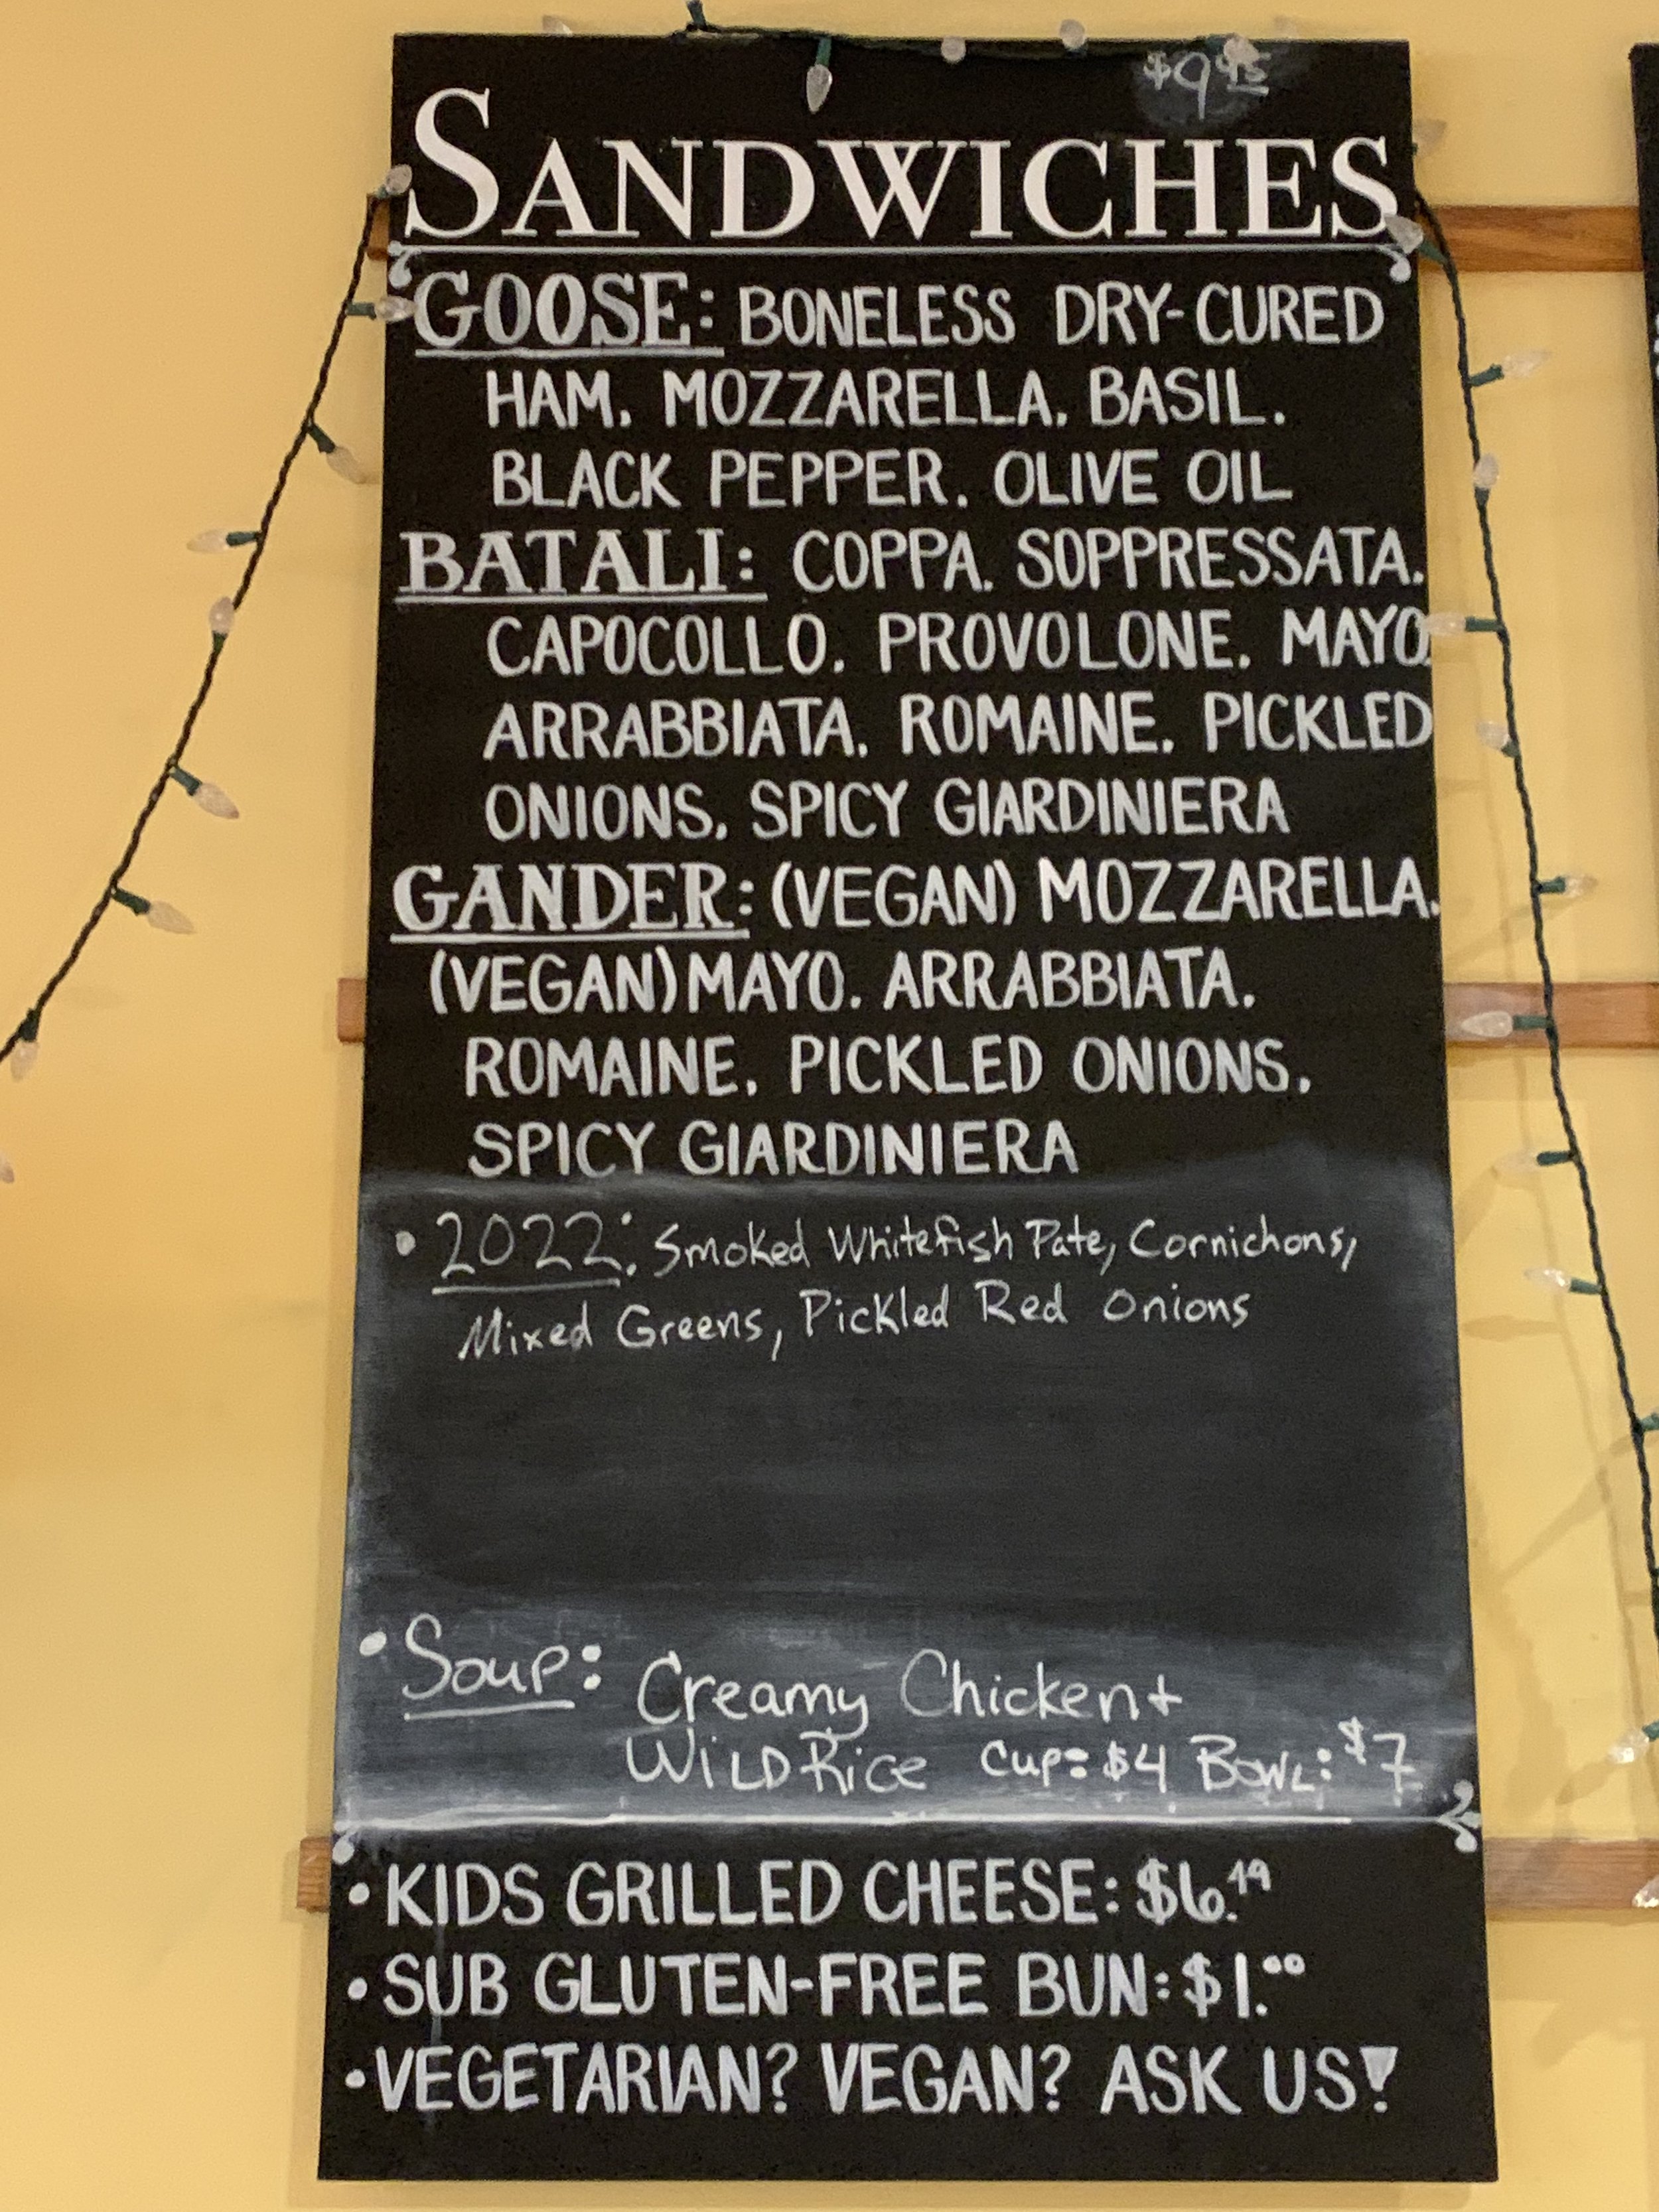 $9.95
SANDWICHES
GOOSE: BONELESS DRY-CURED
HAM. MOZZARELLA. BASIL.
BLACK PEPPER. OLIVE OIL
BATALI: COPPA. SOPPRESSATA.
CAPOCOLLO. PROVOLONE. MAYO.
ARRABBIATA. ROMAINE. PICKLED
ONIONS. SPICY GIARDINIERA
GANDER: (VEGAN) MOZZARELLA.
(VEGAN) MAYO. ARRABBIATA.
ROMAINE. PICKLED ONIONS.
SPICY GIARDINIERA
• 2022: Smoked Whitefish Pate, Cornichons,
Mixed Greens, Pickled Red Onions
• Soup: Creamy Chicken +
Wild Rice Cup: $4 Bowl: $7
• KIDS GRILLED CHEESE: $6.49
• SUB GLUTEN-FREE BUN: $1.00
• VEGETARIAN? VEGAN? ASK US!